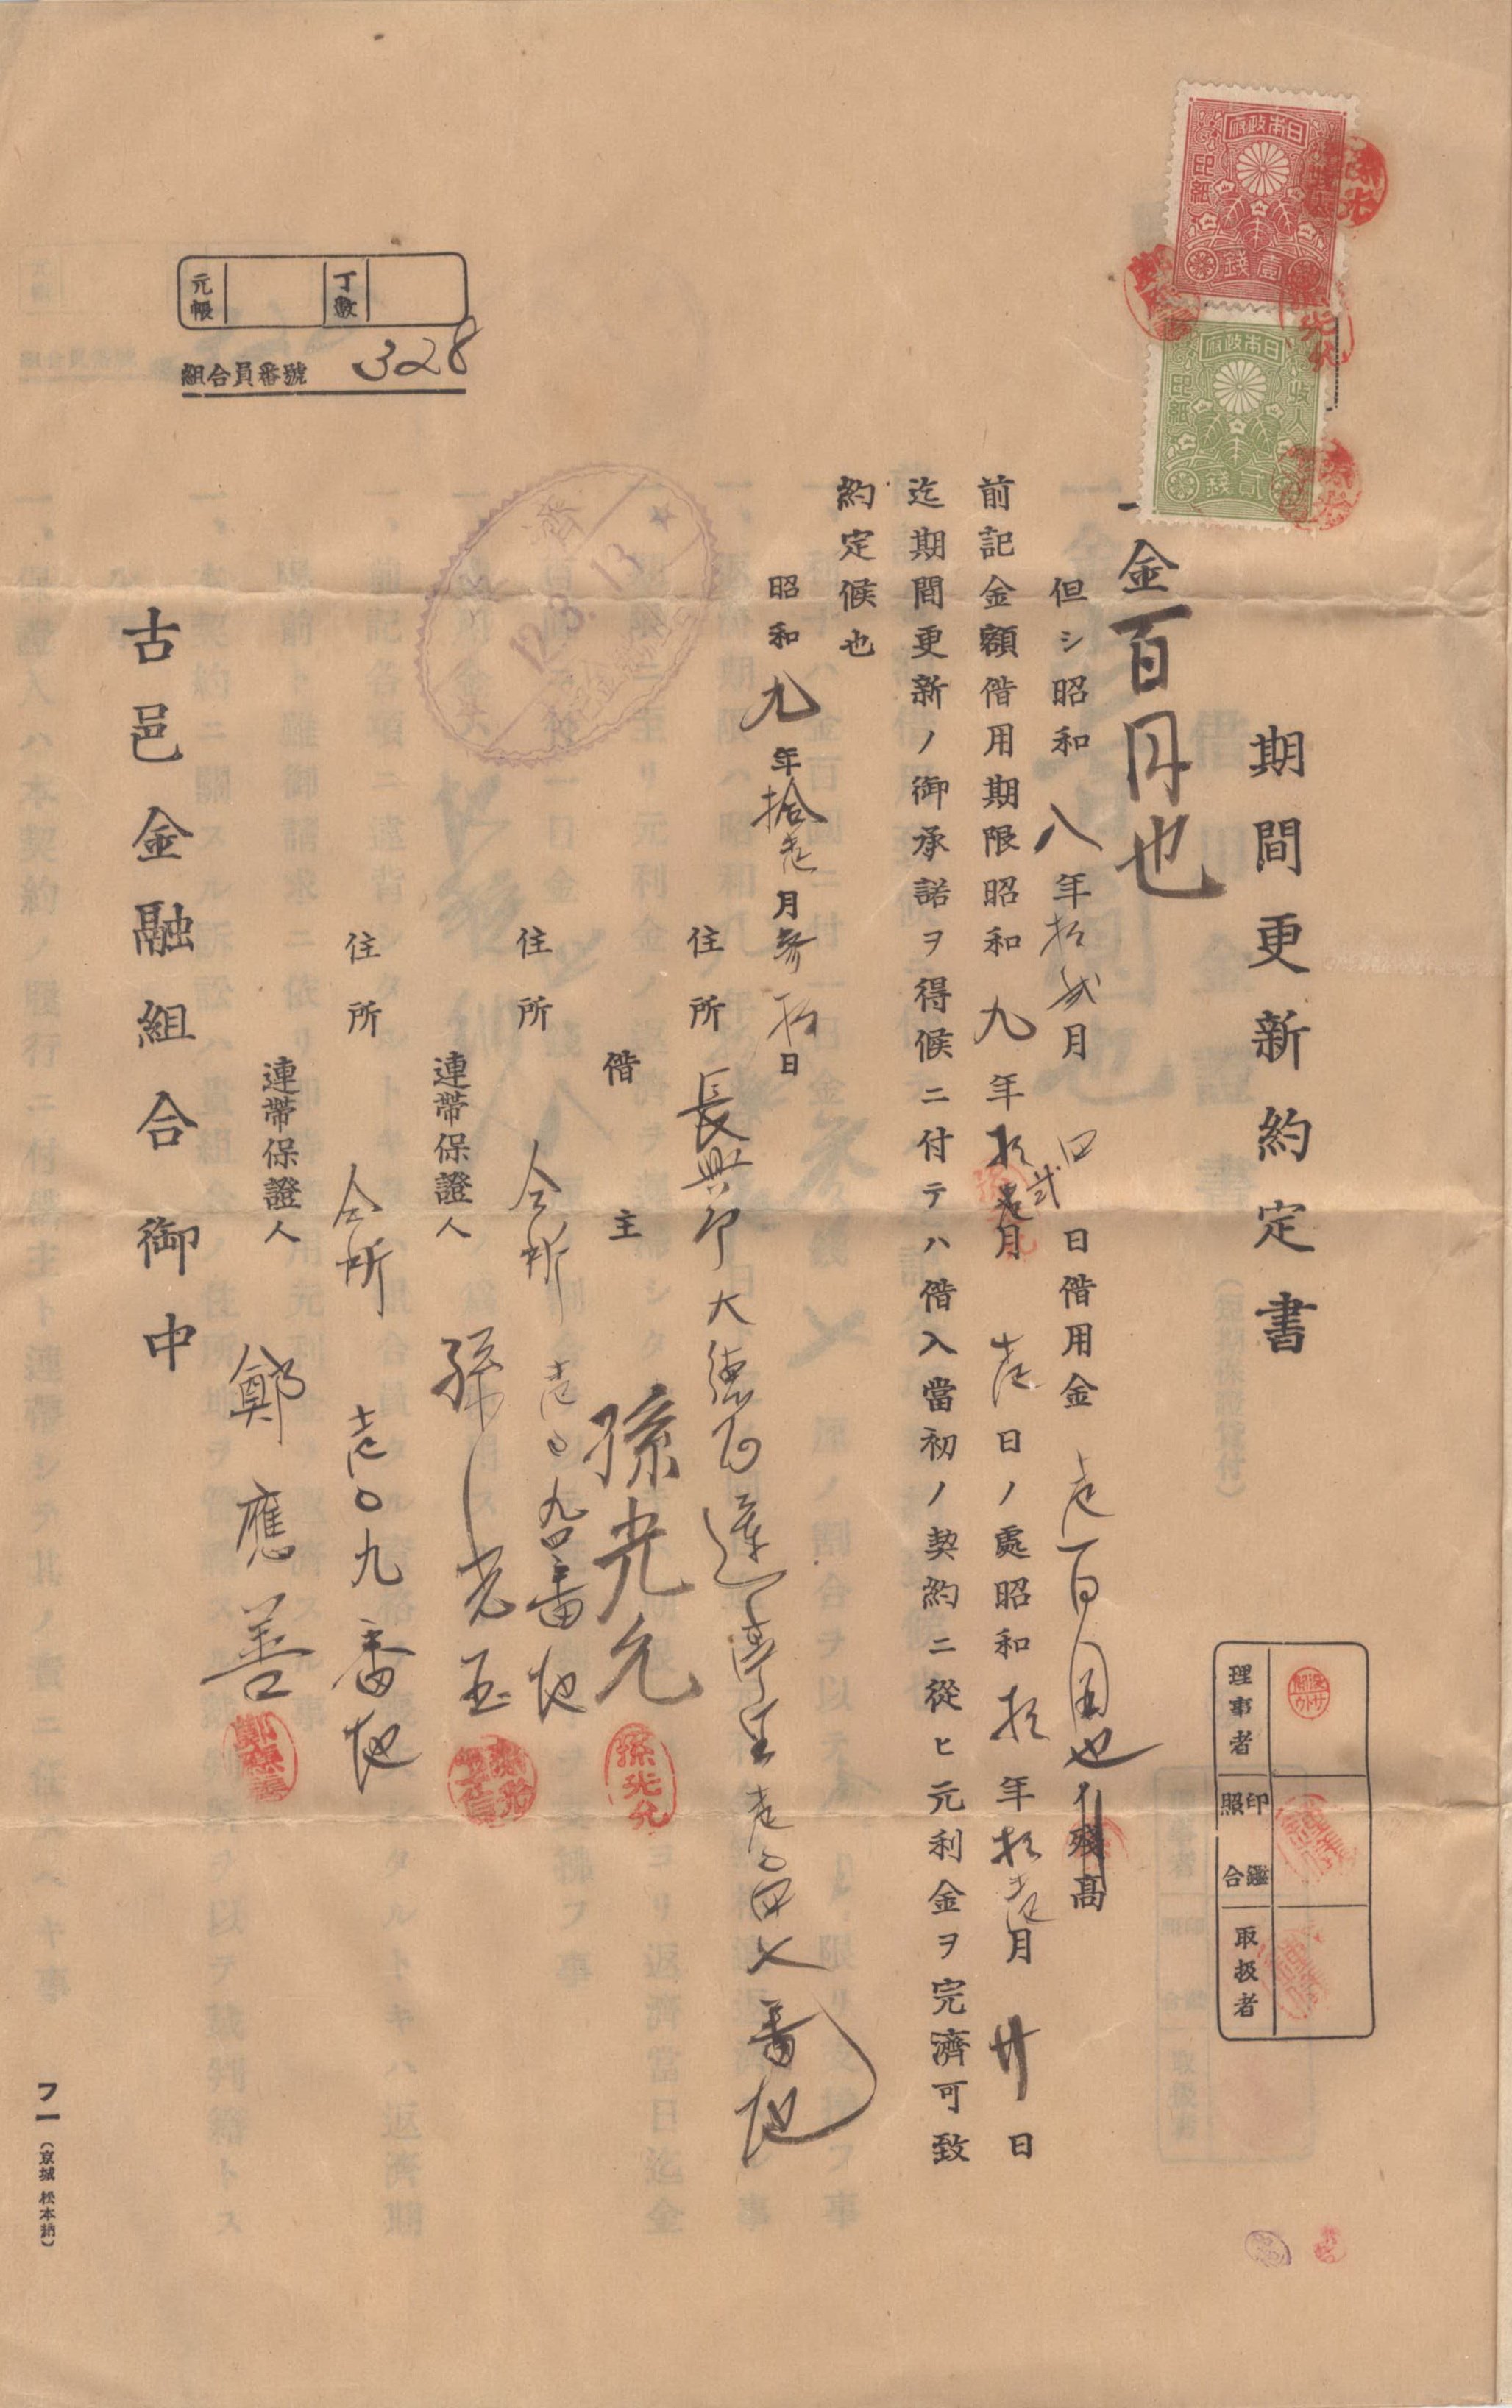 期間更新約定書
一金百円也
但シ昭和八年拾弐月四日借用金壱百圓也ノ残高
前記金額借用期限昭和九年拾弐月壱日ノ處昭和拾年拾壱月廿日
迄期間更新ノ御承諾ヲ得候ニ付テハ借入當初ノ契約ニ從ヒ元利金ヲ完濟可致
約定候也
昭和九年拾壱月參拾日
住所 長興郡大德面蓮亭里壱〇四七番地
借主 孫光允
住所 仝所 壱〇九四番地
連帶保證人 孫光玉
住所 仝所 壱〇九番地
連帶保證人 鄭應善
古邑金融組合御中
日本政府
收入印紙
壹錢
日本政府
收入印紙
貳錢
理事者
印鑑照合
取扱者
元帳
丁數
組合員番號 328
濟
12.3.13
孫光允
鄭應善
フ一(京城 松本納)